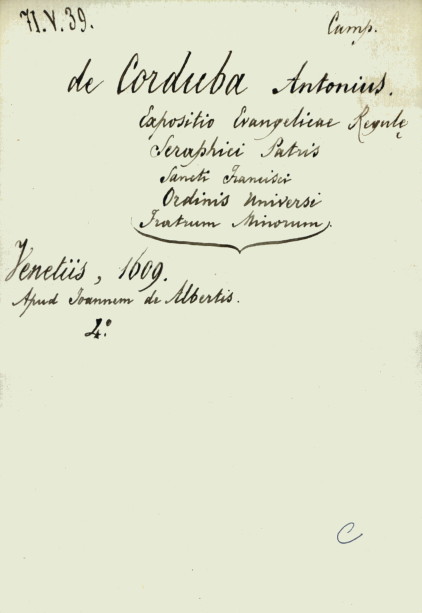 71.V.39.
Camp.
de Corduba Antonius.
Expositio Evangelicae Regulę
Seraphici Patris
Sancti Francisci
Ordinis Universi
Fratrum Minorum.
Venetiis, 1609.
Apud Joannem de Albertis.
4°
C